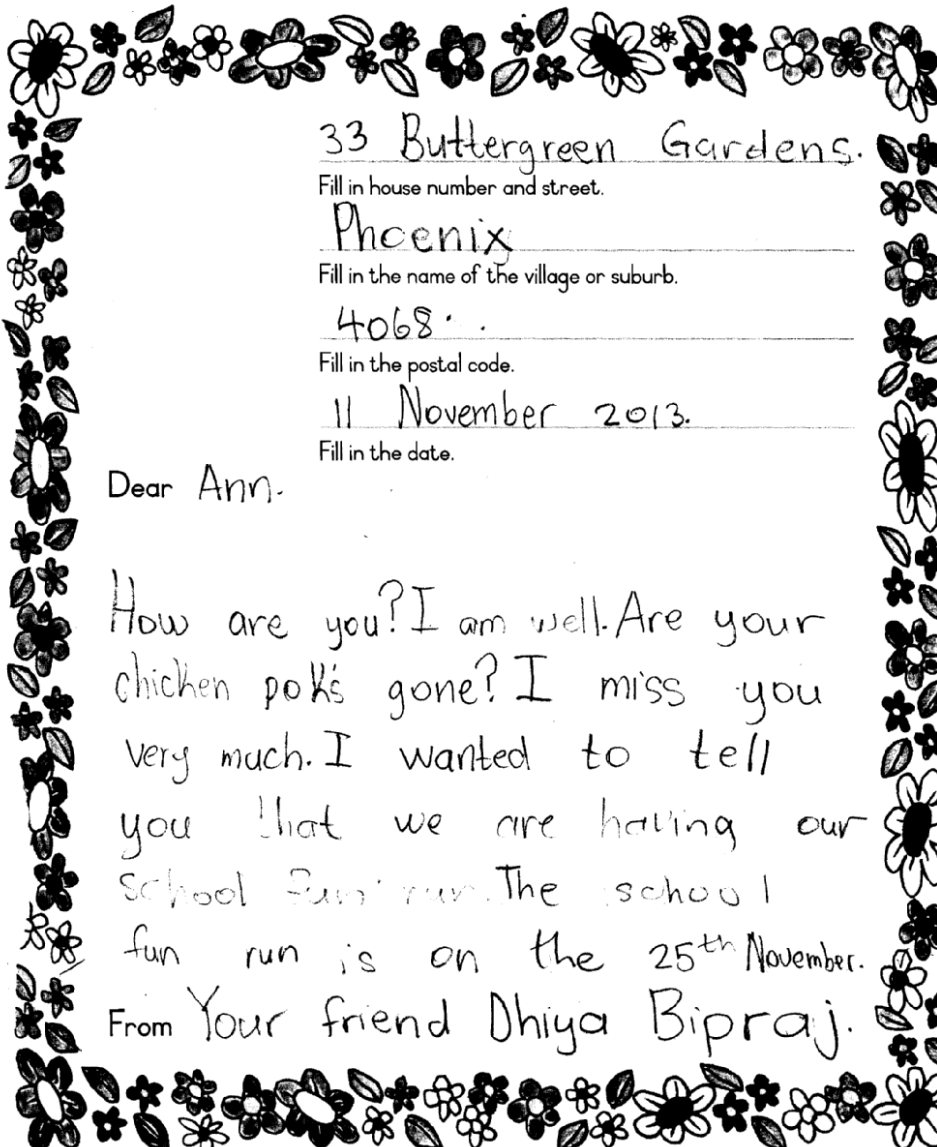 33 Buttergreen Gardens.
Fill in house number and street.
Phoenix
Fill in the name of the village or suburb.
4068.
Fill in the postal code.
11 November 2013.
Fill in the date.
Dear Ann.
How are you? I am well. Are your
chicken pok's gone? I miss you
very much. I wanted to tell
you that we are having our
school fun run. The school
fun run is on the 25th November.
From Your friend Dhiya Bipraj.